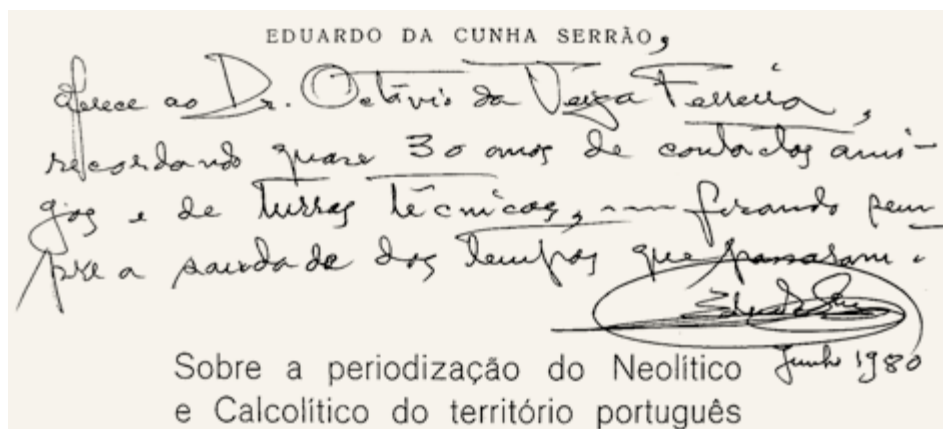 EDUARDO DA CUNHA SERRÃO,
oferece ao Dr. Octávio da Veiga Ferreira,
recordando quase 30 anos de contactos ami-
gos e de turras técnicas, — ficando sem-
pre a saudade dos tempos que passaram.
Junho 1980
Sobre a periodização do Neolítico
e Calcolítico do território português